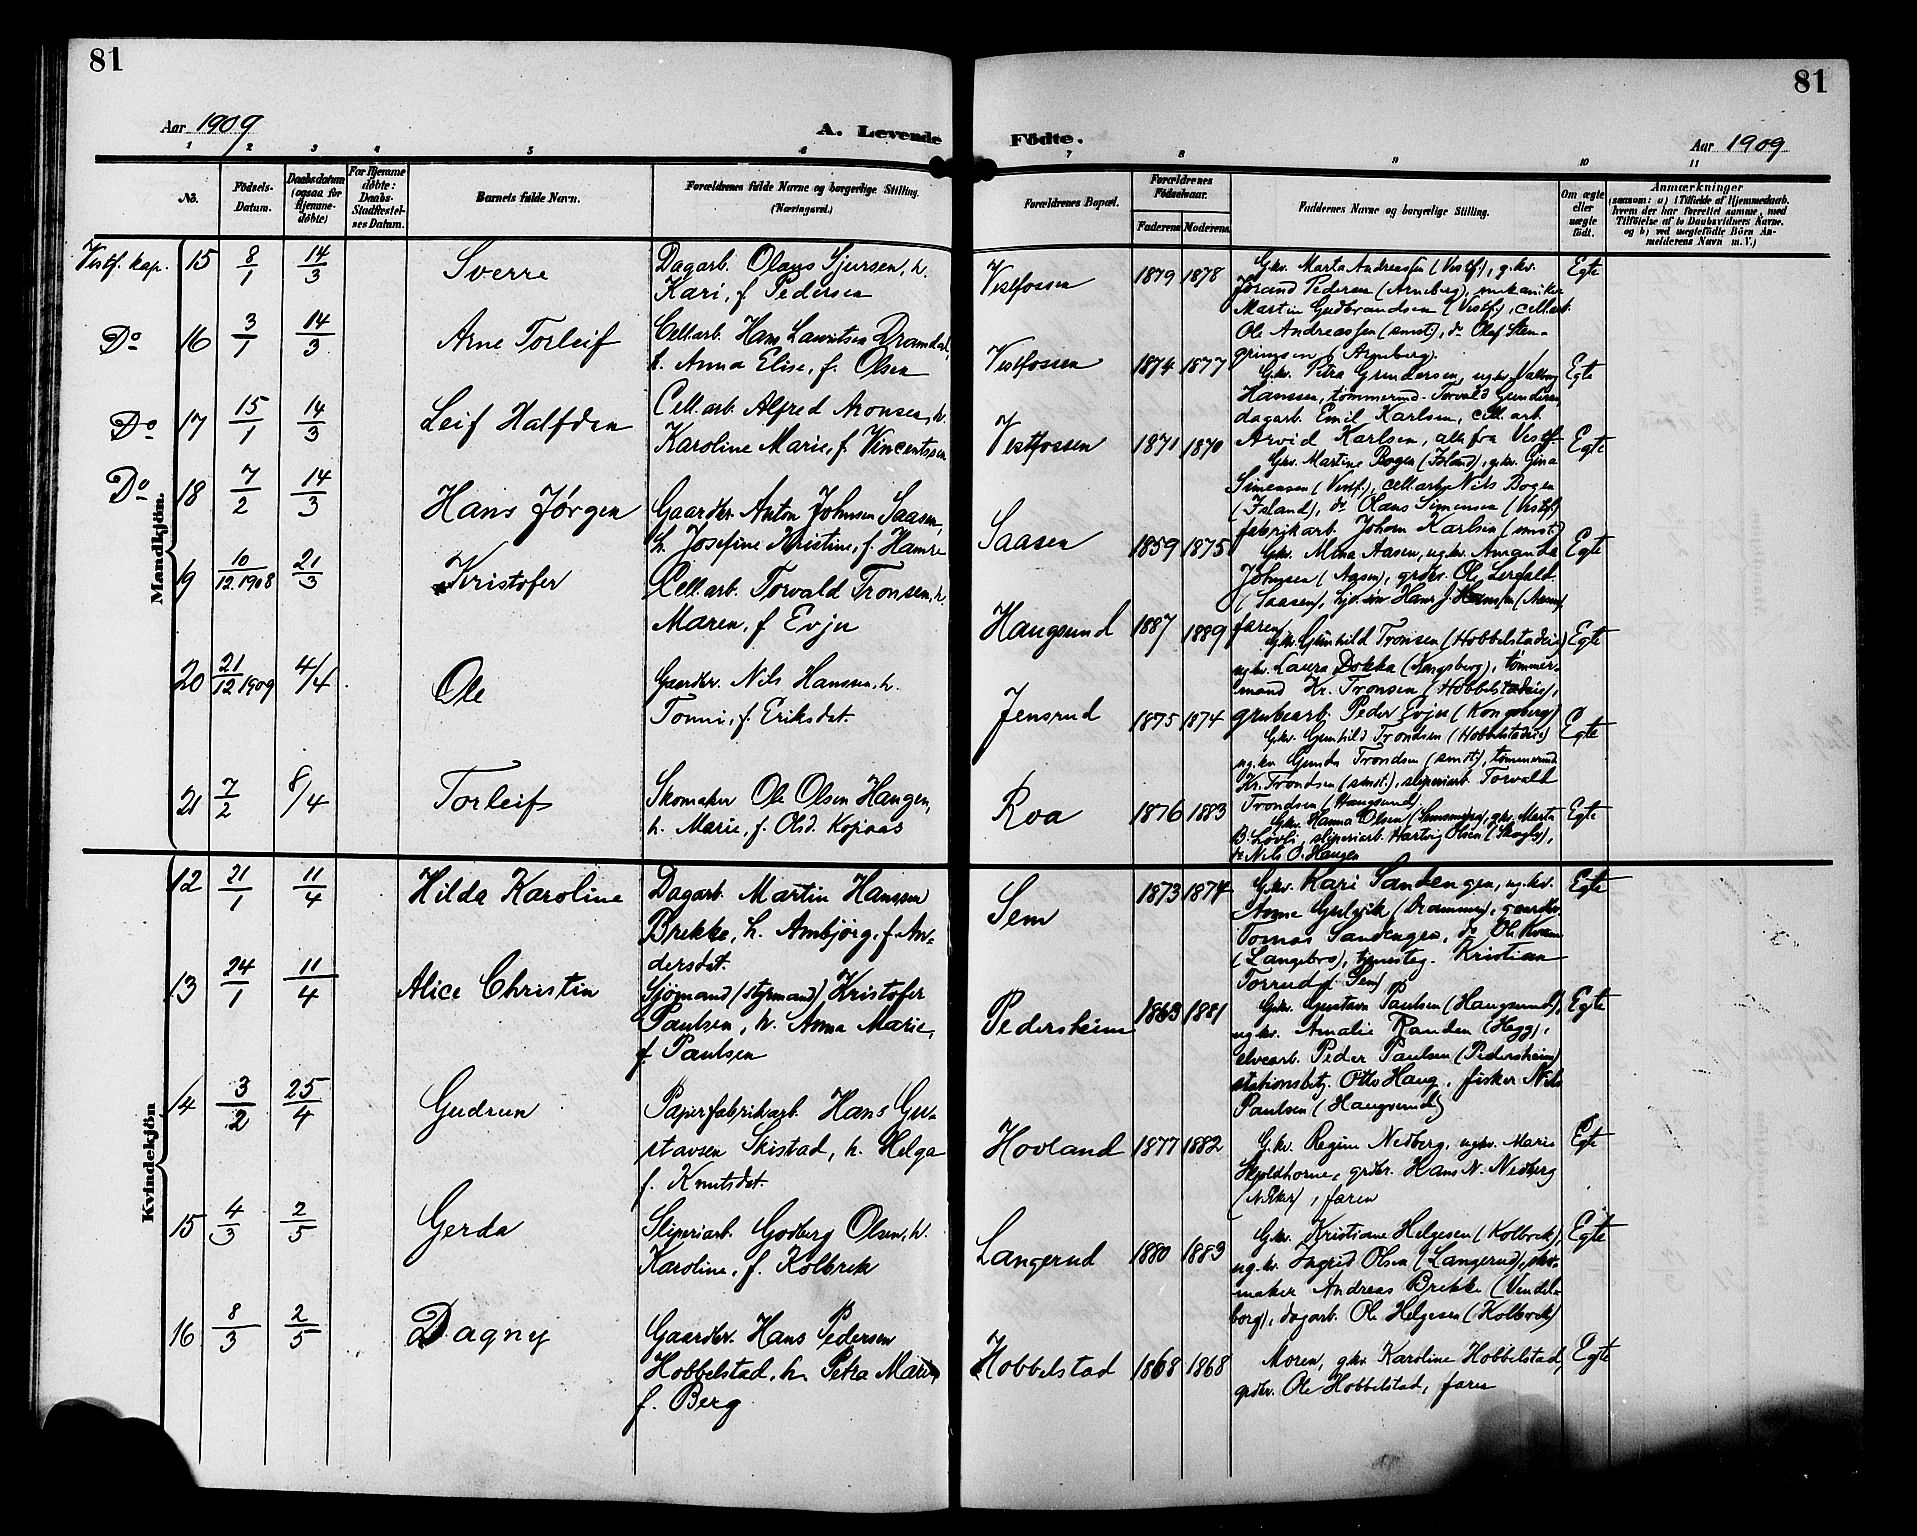 81
81
Aar 1909
A. Levende
Födte.
Aar 1909
1 2 3 4 5 6
7 8 9 10 11
No.
Födsels-
Datum.
Daabsdatum
(ogsaa for
Hjemme-
döbte)
For Hjemme
döbte:
Daabs-
Stadfæstel-
ses Datum.
Barnets fulde Navn.
Forældrenes fulde Navne og borgerlige Stilling.
(Næringsvei.)
Forældrenes Bopæl.
Forældrenes
Födselsaar.
Faderens Moderens
Faddernes Navne og borgerlige Stilling.
Om ægte
eller
uægte
födt.
Anmærkninger
(saasom: a) i Tilfælde af Hjemmedaab.
hvem der har forrettet samme, med
Tilföielse af to Daabsvidners Navne.
og b) ved uægtefödte Börn An-
melderens Navn m. V.)
Mandkjön.
Vestf. kap. 15 8/1 14/3 Sverre
Dagarb. Olaus Sjursen, h.
Kari, f. Pedersen
Vestfossen 1879 1878
Gkv. Marta Andreassen (Vestf.), g.kv.
Jörand Pedersen (Arneberg), mekaniker
Martin Gudbrandsen (Vestf.), cell.arb.
Ole Andreassen (smst.), do Olaf Sten-
grimsen (Arneberg).
Egte
Do 16 3/1 14/3 Arne Torleif
Cell.arb. Hans Lauritsen Dramdal,
h. Anna Elise, f. Olsen
Vestfossen 1874 1877
G.kv. Petra Gundersen, ugkv. Valborg
Hanssen, tømmermd. Torvald Gundersen,
dagarb. Emil Karlsen, cell.arb.
Arvid Karlsen, alle fra Vestf.
Egte
Do 17 15/1 14/3 Leif Halfdan
Cell.arb. Alfred Aronsen, h.
Karoline Marie, f. Vincentssen
Vestfossen 1871 1870
Gkv. Martine Bogen (Fsland), gkv. Gina
Simensen (Vestf.), cell.arb. Nils Bogen
(Fsland), do Olaus Simensen (Vestf.)
fabrikarb. Johan Karlsen (smst.)
Egte
Do 18 7/2 14/3 Hans Jørgen
Gaardbr. Anton Johnsen Saasen,
h. Josefine Kristine, f. Hamre
Saasen 1859 1875
Gkv. Mina Aasen, ugkv. Amanda
Johnsen (Aasen), grdbr. Ole Lerfald
(Saasen), hjv. søn Hans J. Hansen (Aasen),
faren
Egte
19 10/12 1908 21/3 Kristofer
Cell.arb. Torvald Tronsen, h.
Maren, f. Evju
Haugsund 1887 1889
Gkv. Gunhild Tronsen (Hobbelstadeie)
ugkv. Laura Dokka (Kongsberg), tömmer-
mand Kr. Tronsen (Hobbelstadeie),
grubearb. Peder Evju (Kongsberg)
Egte
20 21/12 1909 4/4 Ole
Gaardbr. Nils Hanssen, h.
Tonni, f. Eriksdat.
Jensrud 1875 1874
Gkv. Gunhild Trondsen (Hobbelstadeie)
ugkv Gunda Trondsen (smst), tömmermd
Kr. Trondsen (smst.), sliperiarb Torvald
Trondsen (Haugsund)
Egte
21 7/2 8/4 Torleif
Skomaker Ole Olsen Haugen,
h. Marie, f. Olsd. Kopaas
Roa 1876 1883
Gkv. Hanna Olsen, gkv. Marta
B. Lövli, sliperiarb. Hartvig Olsen (Skogly),
do Nils O. Haugen
Egte
Kvindekjön
12 21/1 11/4 Hilda Karoline
Dagarb. Martin Hanssen
Brekke, h. Ambjörg, f. An-
dersdat.
Sem 1873 1874
Gkv. Kari Sandengen, ug.kv.
Anne Gulsvik (Drammen), gaardbr.
Tomas Sandengen, do Ole Kvam
(Langebro), tjenesteg. Kristian
Torrud (Sem)
Egte
13 24/1 11/4 Alice Christin
Sjømand (styrmand) Kristofer
Paulsen, h. Anna Marie,
f. Paulsen
Pedersheim 1863 1881
Gkv. Gustava Paulsen (Haugsund),
ugkv. Amalie Randen (Hegg),
elvearb. Peder Paulsen (Pedersheim)
stationsbetj. Otto Haug, fisker Nils
Paulsen (Haugsund)
Egte
14 3/2 25/4 Gudrun
Papirfabrikarb. Hans Gu-
stavsen Skistad, h. Helga
f. Knutsdat.
Hovland 1877 1882
G.kv. Regine Nedberg, ugkv. Marie
Skjoldhorne, grdbr. Hans N. Nedberg
(N. Eker), faren
Egte
15 4/3 2/5 Gerda
Sliperiarb. Godberg Olsen, h.
Karoline, f. Kolbræk
Langerud 1880 1883
Gkv. Kristiane Helgesen (Kolbræk),
ug.kv. Ingrid Olsen (Langerud), sko-
maker Andreas Brekke (Vendel-
borg), dagarb. Ole Helgesen (Kolbræk)
Egte
16 8/3 2/5 Dagny
Gaardbr. Hans Pedersen
Hobbelstad, h. Petra Marie
f. Berg
Hobbelstad 1868 1868
Moren, gkv. Karoline Hobbelstad,
grdbr. Ole Hobbelstad, faren
Egte